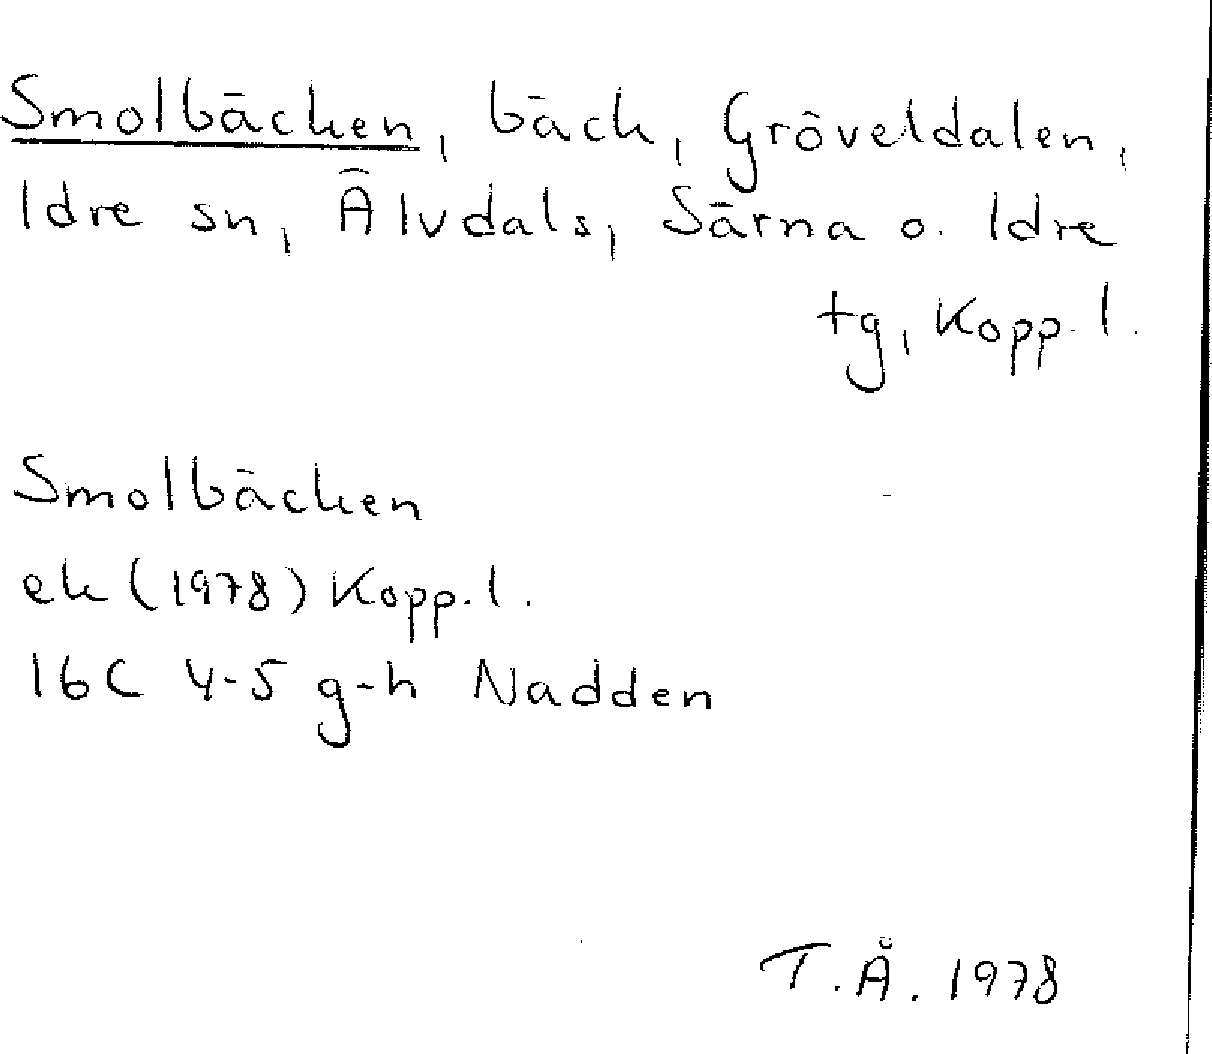 Smolbäcken, bäck, Gröveldalen,
Idre sn, Älvdals, Särna o. Idre
tg, Kopp. l.
Smolbäcken
ek (1978) Kopp. l.
16C 4-5 g-h Nadden
T.Å. 1978